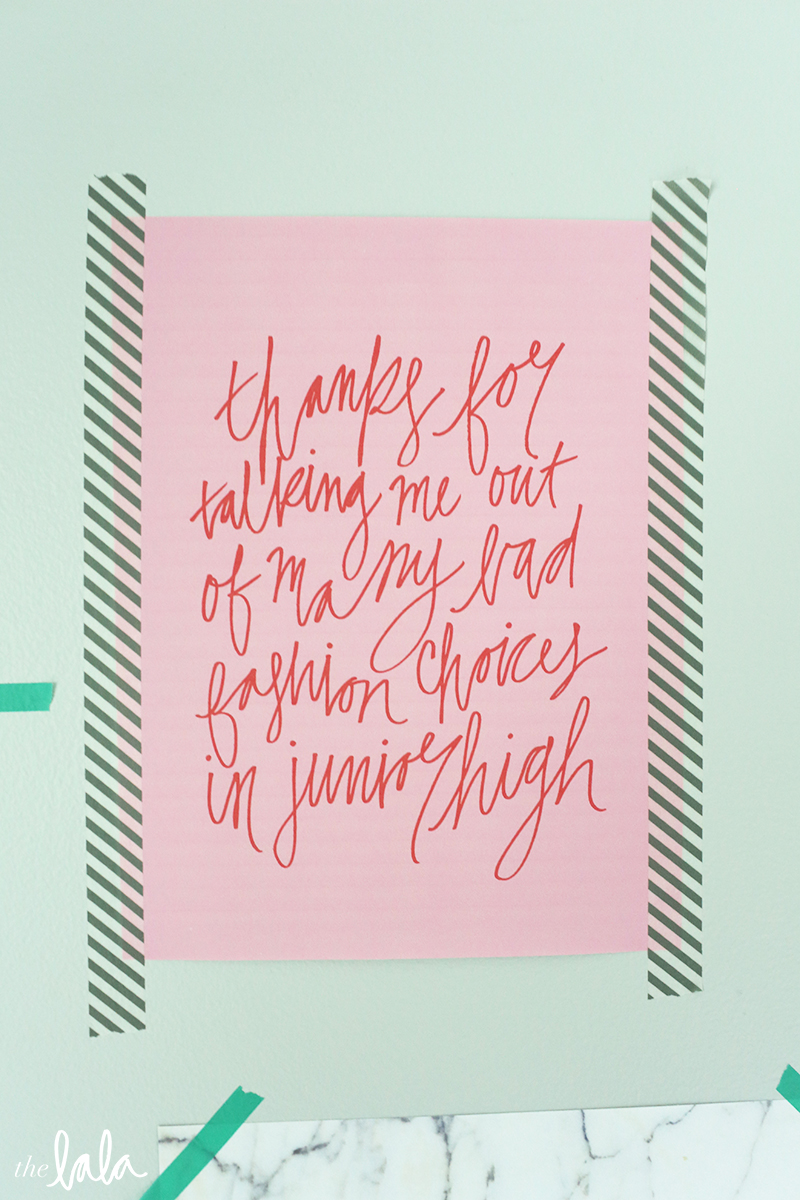 thanks for
talking me out
of many bad
fashion choices
in junior high
the lala